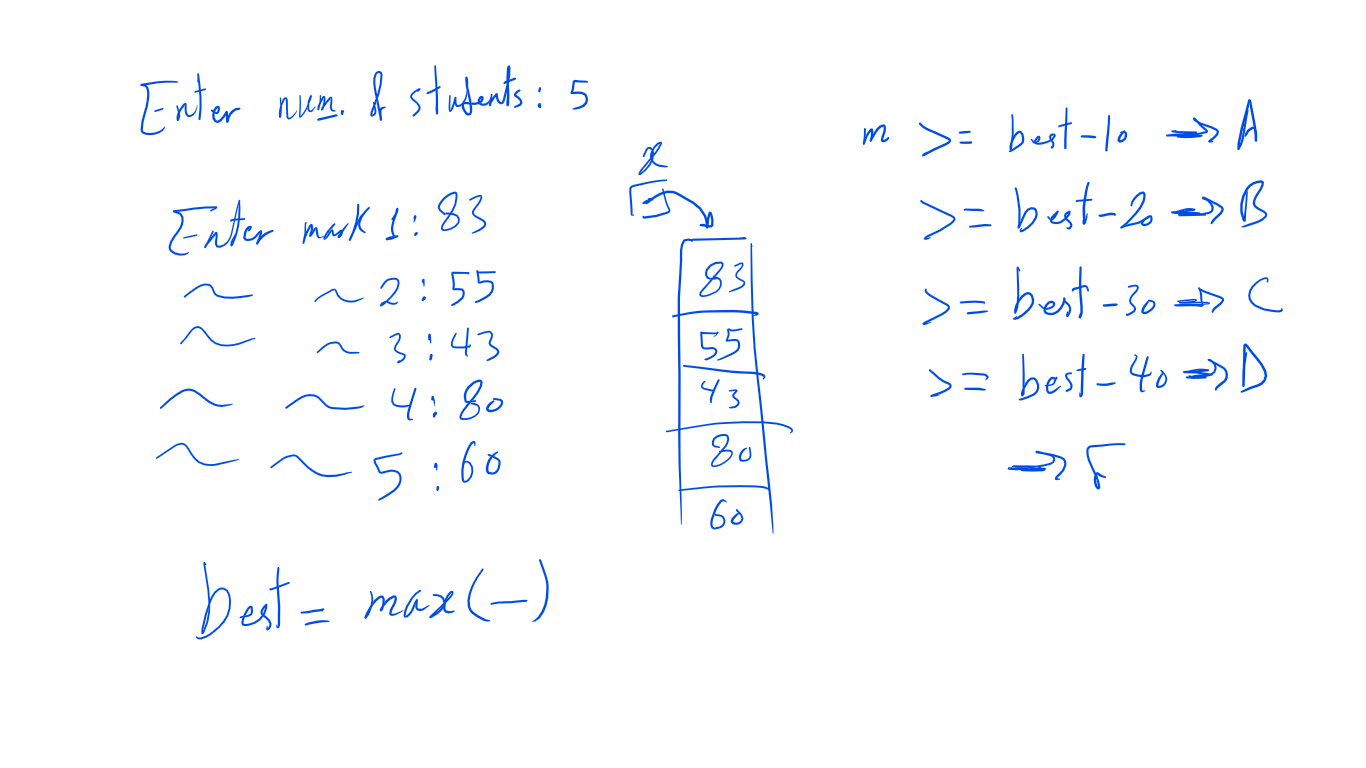 Enter num. of students: 5
Enter mark 1: 83
~ ~ 2: 55
~ ~ 3: 43
~ ~ 4: 80
~ ~ 5: 60
best = max(—)
x
83
55
43
80
60
m >= best-10 → A
>= best-20 → B
>= best-30 → C
>= best-40 → D
→ F